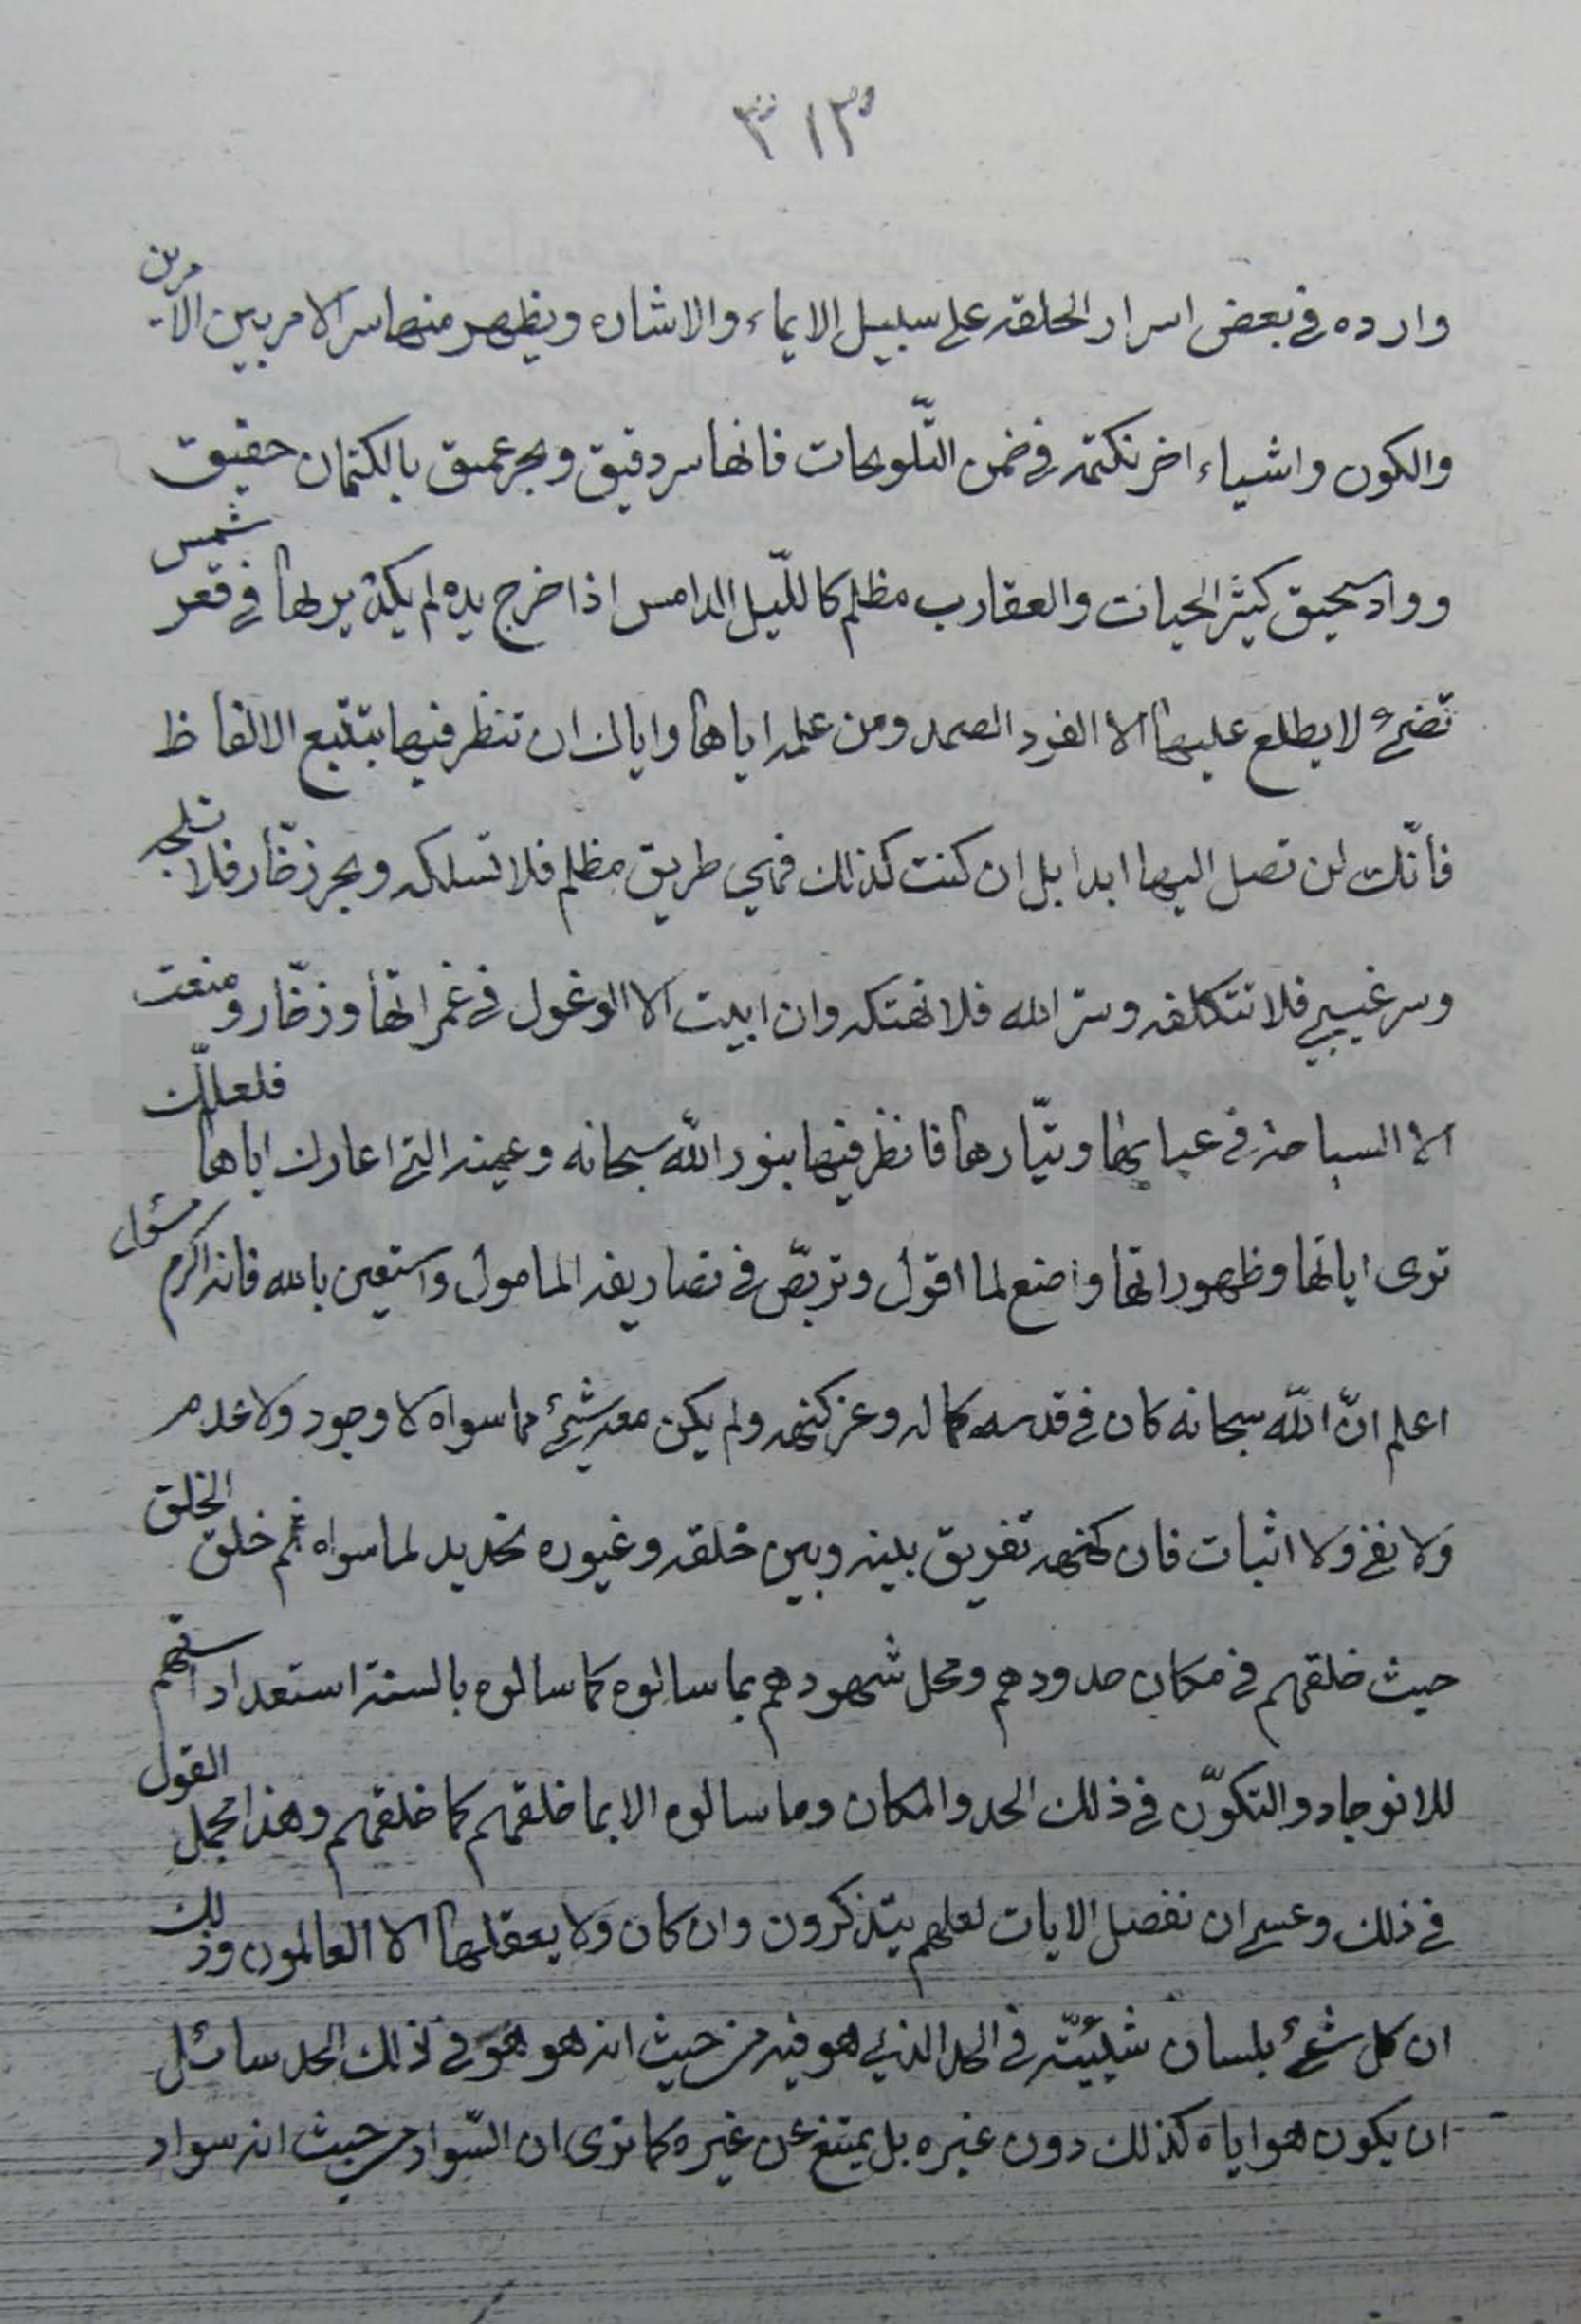 ٣١٣
وارده في بعض اسرار الخلقه على سبيل الايماء والاشاره ويظهر منها سر الامر بين الامرين
والكون واشياء اخر نكتمه في ضمن التّلويحات فانها سر دقيق وبحر عميق بالكتمان حقيق
وواد سحيق كثير الحيات والعقارب مظلم كاللّيل الدامس اذا خرج يده لم يكد يريها في قعره شمس
تضئ لا يطلع عليها الا الفرد الصمد ومن علمه اياها واياك ان تنظر فيها بتتبع الالفاظ
فانّك لن تصل اليها ابدا بل ان كنت كذلك فهي طريق مظلم فلا تسلكه وبحر زخّار فلا تلجه
وسر غيبي فلا تتكلفه وستر الله فلا تهتكه وان ابيت الا الوغول في غمراتها وزخّار ومنعت
الا السباحة في عبابها وتيّارها فانظر فيها بنور الله سبحانه وعينه التي اعارك اياها فلعلّك
ترى اياتها وظهوراتها واصنع لما اقول وتربّص في تصاريفه المامول واستعين بالله فانه اكرم مسئول
اعلم انّ الله سبحانه كان في قدس كماله وعز كنهه ولم يكن معه شئ مما سواه لا وجود ولا عدم
ولا نفي ولا اثبات فان كنهه تفريق بينه وبين خلقه وغيوره تحديد لما سواه ثم خلق الخلق
حيث خلقهم في مكان حدودهم ومحل شهودهم بما سالوه كما سالوه بالسنة استعداداتهم
للانوجاد والتكوّن في ذلك الحد والمكان وما سالوه الا بما خلقهم كما خلقهم وهذا مجمل القول
في ذلك وعسى ان نفصل الايات لعلهم يتذكرون وان كان ولا يعقلها الا العالمون وذلك
ان كل شئ بلسان شيئيّته في الحد الذي هو فيه من حيث انه هو هو في ذلك الحد سائل
ان يكون هو اياه كذلك دون غيره بل يمتنع عن غيره كما ترى ان السّواد من حيث انه سواد